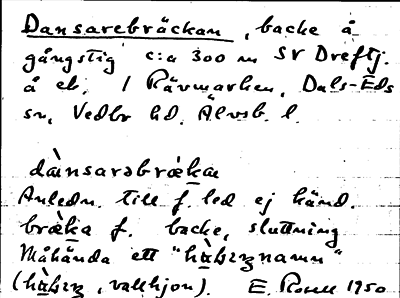 Dansarebräckan, backe å
gångstig c:a 300 m SV Dreftj.
å eb. / Rävmarken, Dals-Eds
sn, Vedbo hd. Älvsb. l.
dànsarəbrǽka
Anledn. till f. led ej känd.
brǽka f. backe, sluttning
Måhända ett "namn"
(, vallhjon). E. 1950